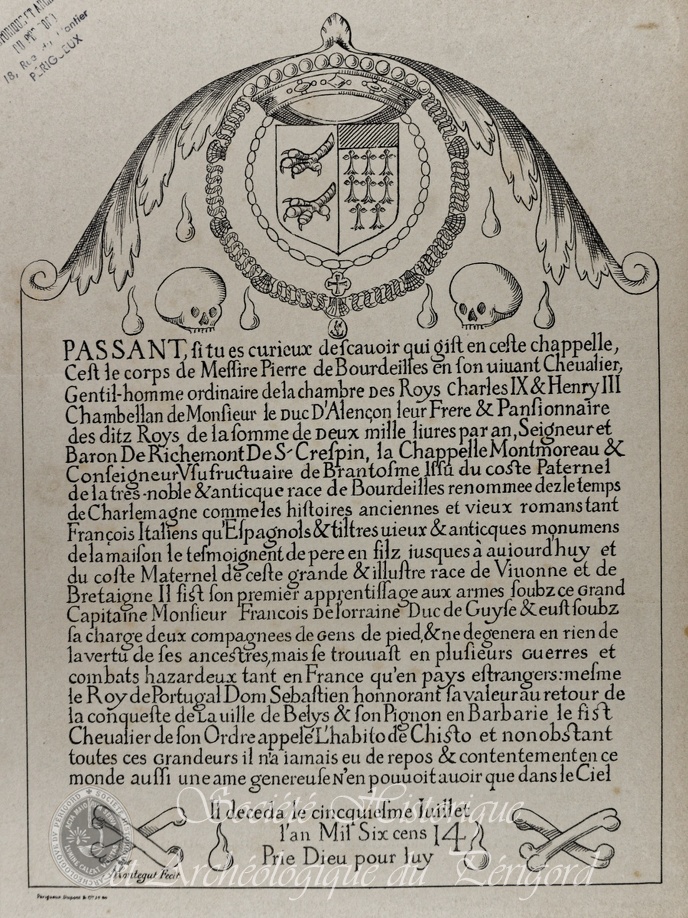 18, Rue du Plantier
PÉRIGUEUX
PASSANT, si tu es curieux de sçauoir qui gist en ceste chappelle,
C'est le corps de Messire Pierre de Bourdeilles en son uiuant Cheualier,
Gentil-homme ordinaire de la chambre DES Roys Charles IX & Henry III
Chambellan de Monsieur le DUC D'Alençon leur Frere & Pansionnaire
des ditz Roys de la somme de DEUX mille liures par an, Seigneur et
Baron DE RICHEMONT DE St CRESPIN, la Chappelle Montmoreau &
Conseigneur Vsufructuaire de Brantosme Issu du coste Paternel
de la tres-noble & anticque race de Bourdeilles renommee dez le temps
de Charlemagne comme les histoires anciennes et vieux romans tant
François Italiens qu'Espagnols & tiltres uieux & anticques monumens
de la maison le tesmoignent de pere en filz iusques à aujourd'huy et
du coste Maternel de ceste grande & illustre race de Viuonne et de
Bretaigne Il fist son premier apprentissage aux armes soubz ce GRAND
Capitaine Monsieur Francois DE lorraine Duc de Guyse & eust soubz
sa charge deux compagnees de GENS de pied, & ne degenera en rien de
la vertu de ses ancestres, mais se trouuast en plusieurs GUERRES et
combats hazardeux tant en France qu'en pays estrangers: mesme
le Roy de Portugal Dom Sebastien honnorant sa valeur au retour de
la conqueste de La uille de Belys & son Pignon en Barbarie le fist
Cheualier de son Ordre appelé L'habito de Chisto et nonobstant
toutes ces GRANDEURS il n'a iamais eu de repos & contentement en ce
monde aussi une ame genereuse N'en pouuoit auoir que dans le Ciel
Il deceda le cincquiesme Iuillet
l'an Mil Six cens 14
Prie Dieu pour luy
Société Historique
et Archéologique du Périgord